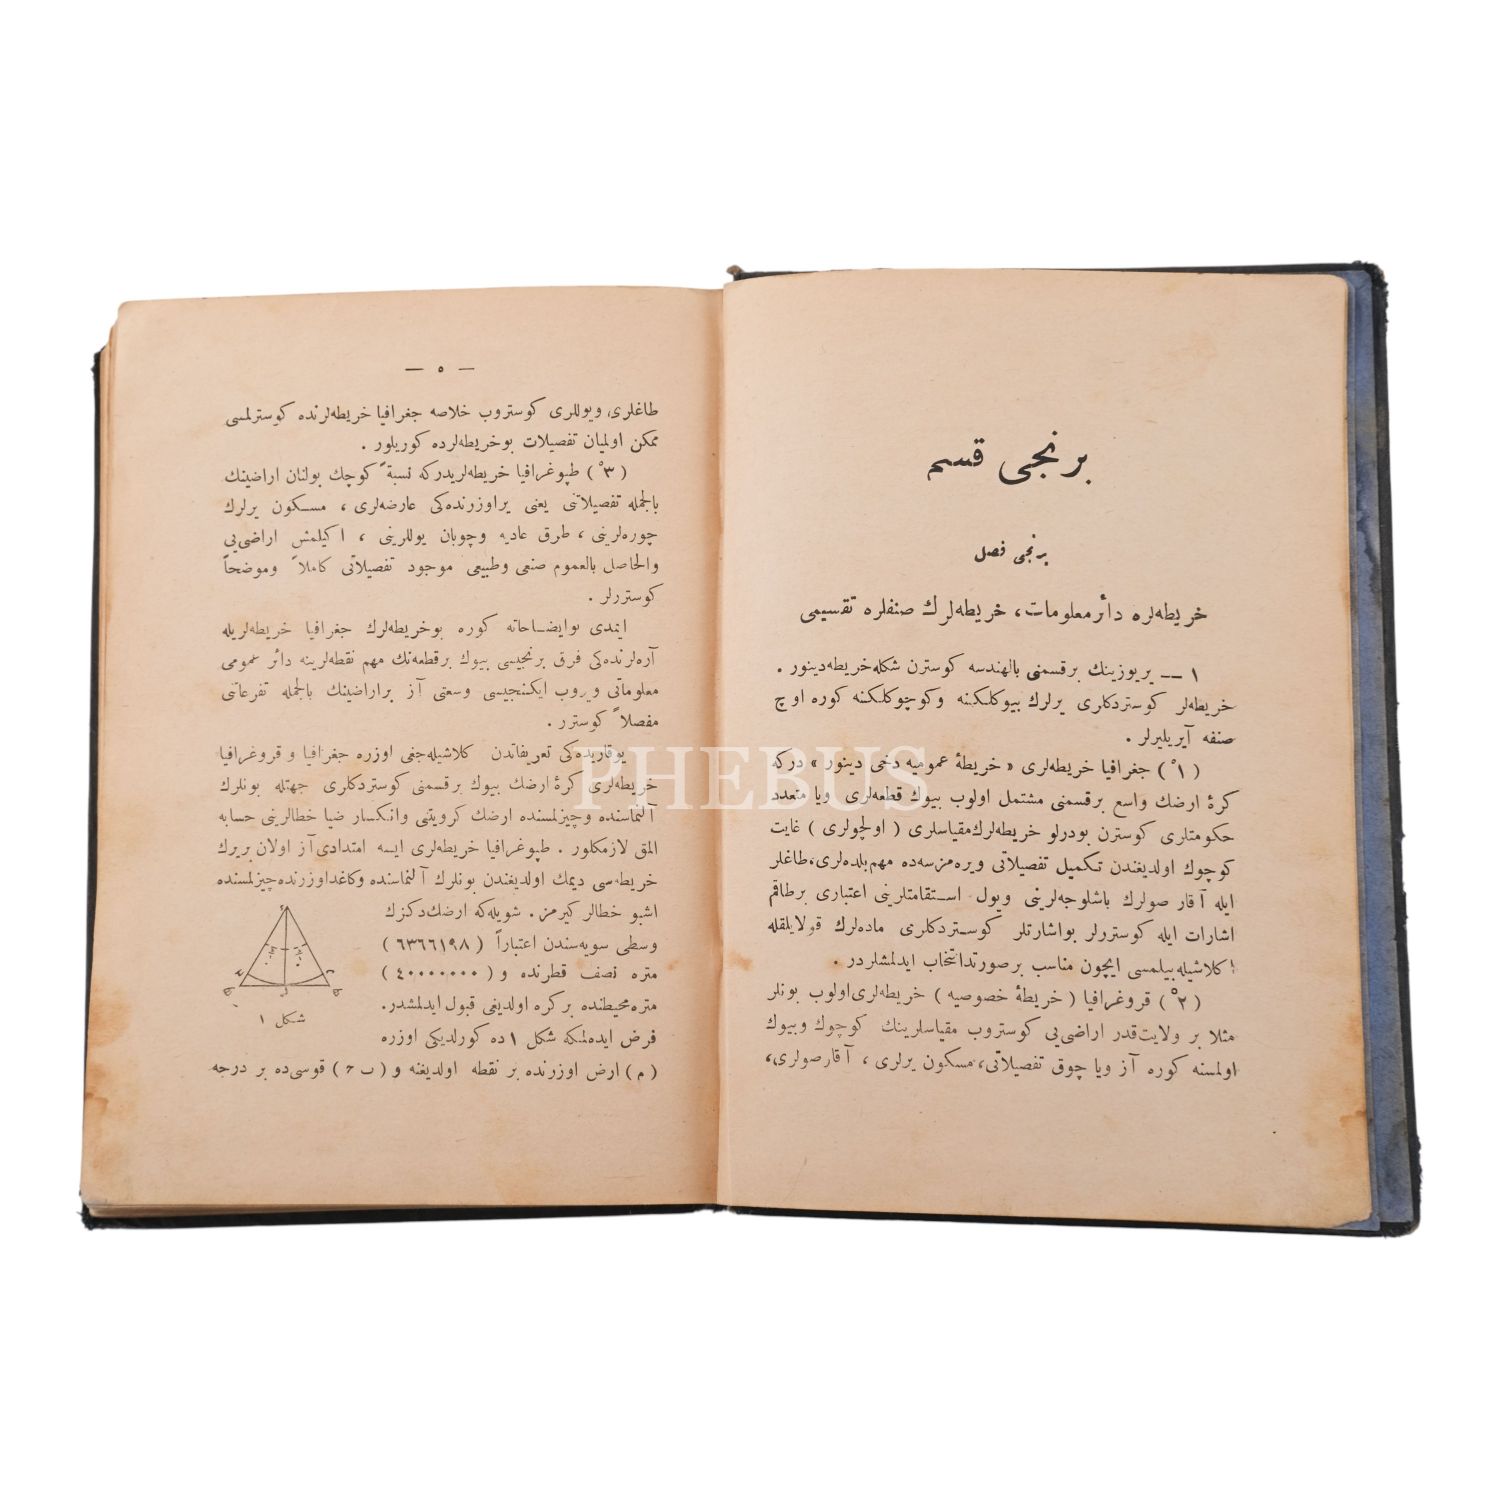 برنجی قسم
برنجی فصل
خریطه‌لره دائر معلومات، خریطه‌لرك صنفلره تقسیمی
١ — یریوزینك برقسمنی بالهندسه كوسترن شكله خریطه‌دینور .
خریطه‌لر كوستردكلری یرلرك بیوكلكنه وكوچوكلكنه كوره اوچ
صنفه آیریلیرلر .
(١°) جغرافیا خریطه‌لری «خریطهٔ عمومیه دخی دینور» دركه
كرهٔ ارضك واسع برقسمنی مشتمل اولوب بیوك قطعه‌لری ویا متعدد
حكومتلری كوسترن بودرلو خریطه‌لرك مقیاسلری (اولچولری) غایت
كوچوك اولدیغندن تكمیل تفصیلاتی ویره‌مزسه‌ده مهم بلده‌لری، طاغلر
ایله آقار صولرك باشلوجه‌لرینی ویول استقامتلرینی اعتباری برطاقم
اشارات ایله كوسترلر بواشارتلر كوستردكلری ماده‌لرك قولایلقله
اكلاشیله‌بیلمسی ایچون مناسب برصورتدا انتخاب ایدلمشلردر .
(٢°) قروغرافیا (خریطهٔ خصوصیه) خریطه‌لری اولوب بونلر
مثلا بر ولایت قدر اراضی‌یی كوستروب مقیاسلرینك كوچوك وبیوك
اولمسنه كوره آز ویا چوق تفصیلاتی، مسكون یرلری ، آقارصولری،
— ٥ —
طاغلری، ویوللری كوستروب خلاصه جغرافیا خریطه‌لرنده كوسترلمسی
ممكن اولمیان تفصیلات بوخریطه‌لرده كوریلور .
(٣°) طپوغرافیا خریطه‌لریدركه نسبةً كوچك بولنان اراضینك
بالجمله تفصیلاتنی یعنی یراوزرنده‌كی عارضه‌لری ، مسكون یرلرك
چوره‌لرینی ، طرق عادیه وچوبان یوللرینی ، اكیلمش اراضی‌یی
والحاصل بالعموم صنعی وطبیعی موجود تفصیلاتی كاملاً وموضحاً
كوسترلر .
ایمدی بوایضاحاته كوره بوخریطه‌لرك جغرافیا خریطه‌لریله
آره‌لرنده‌كی فرق برنجیسی بیوك برقطعه‌نك مهم نقطه‌لرینه دائر عمومی
معلوماتی ویروب ایكنجیسی وسعتی آز براراضینك بالجمله تفرعاتنی
مفصلاً كوسترر .
یوقاریده‌كی تعریفاتدن كلاشیله‌جغی اوزره جغرافیا و قروغرافیا
خریطه‌لری كرهٔ ارضك بیوك برقسمنی كوستردكلری جهتله بونلرك
آلنماسنده وچیزلمسنده ارضك كرویتنی وانكسار ضیا خطالرینی حسابه
المق لازمكلور . طپوغرافیا خریطه‌لری ایسه امتدادی آز اولان بریرك
خریطه‌سی دیمك اولدیغندن بونلرك آلنماسنده وكاغد اوزرنده چیزلمسنده
اشبو خطالر كیرمز . شویله‌كه ارضك دكزك
وسطی سویه‌سندن اعتباراً (٦٣٦٦١٩٨)
متره نصف قطرنده و (٤٠٠٠٠٠٠٠)
متره محیطنده بركره اولدیغی قبول ایدلمشدر.
فرض ایده‌لمكه شكل ١ ده كورلدیكی اوزره
(م) ارض اوزرنده بر نقطه اولدیغنه و (ب ح) قوسی‌ده بر درجه
شكل ١
PHEBUS